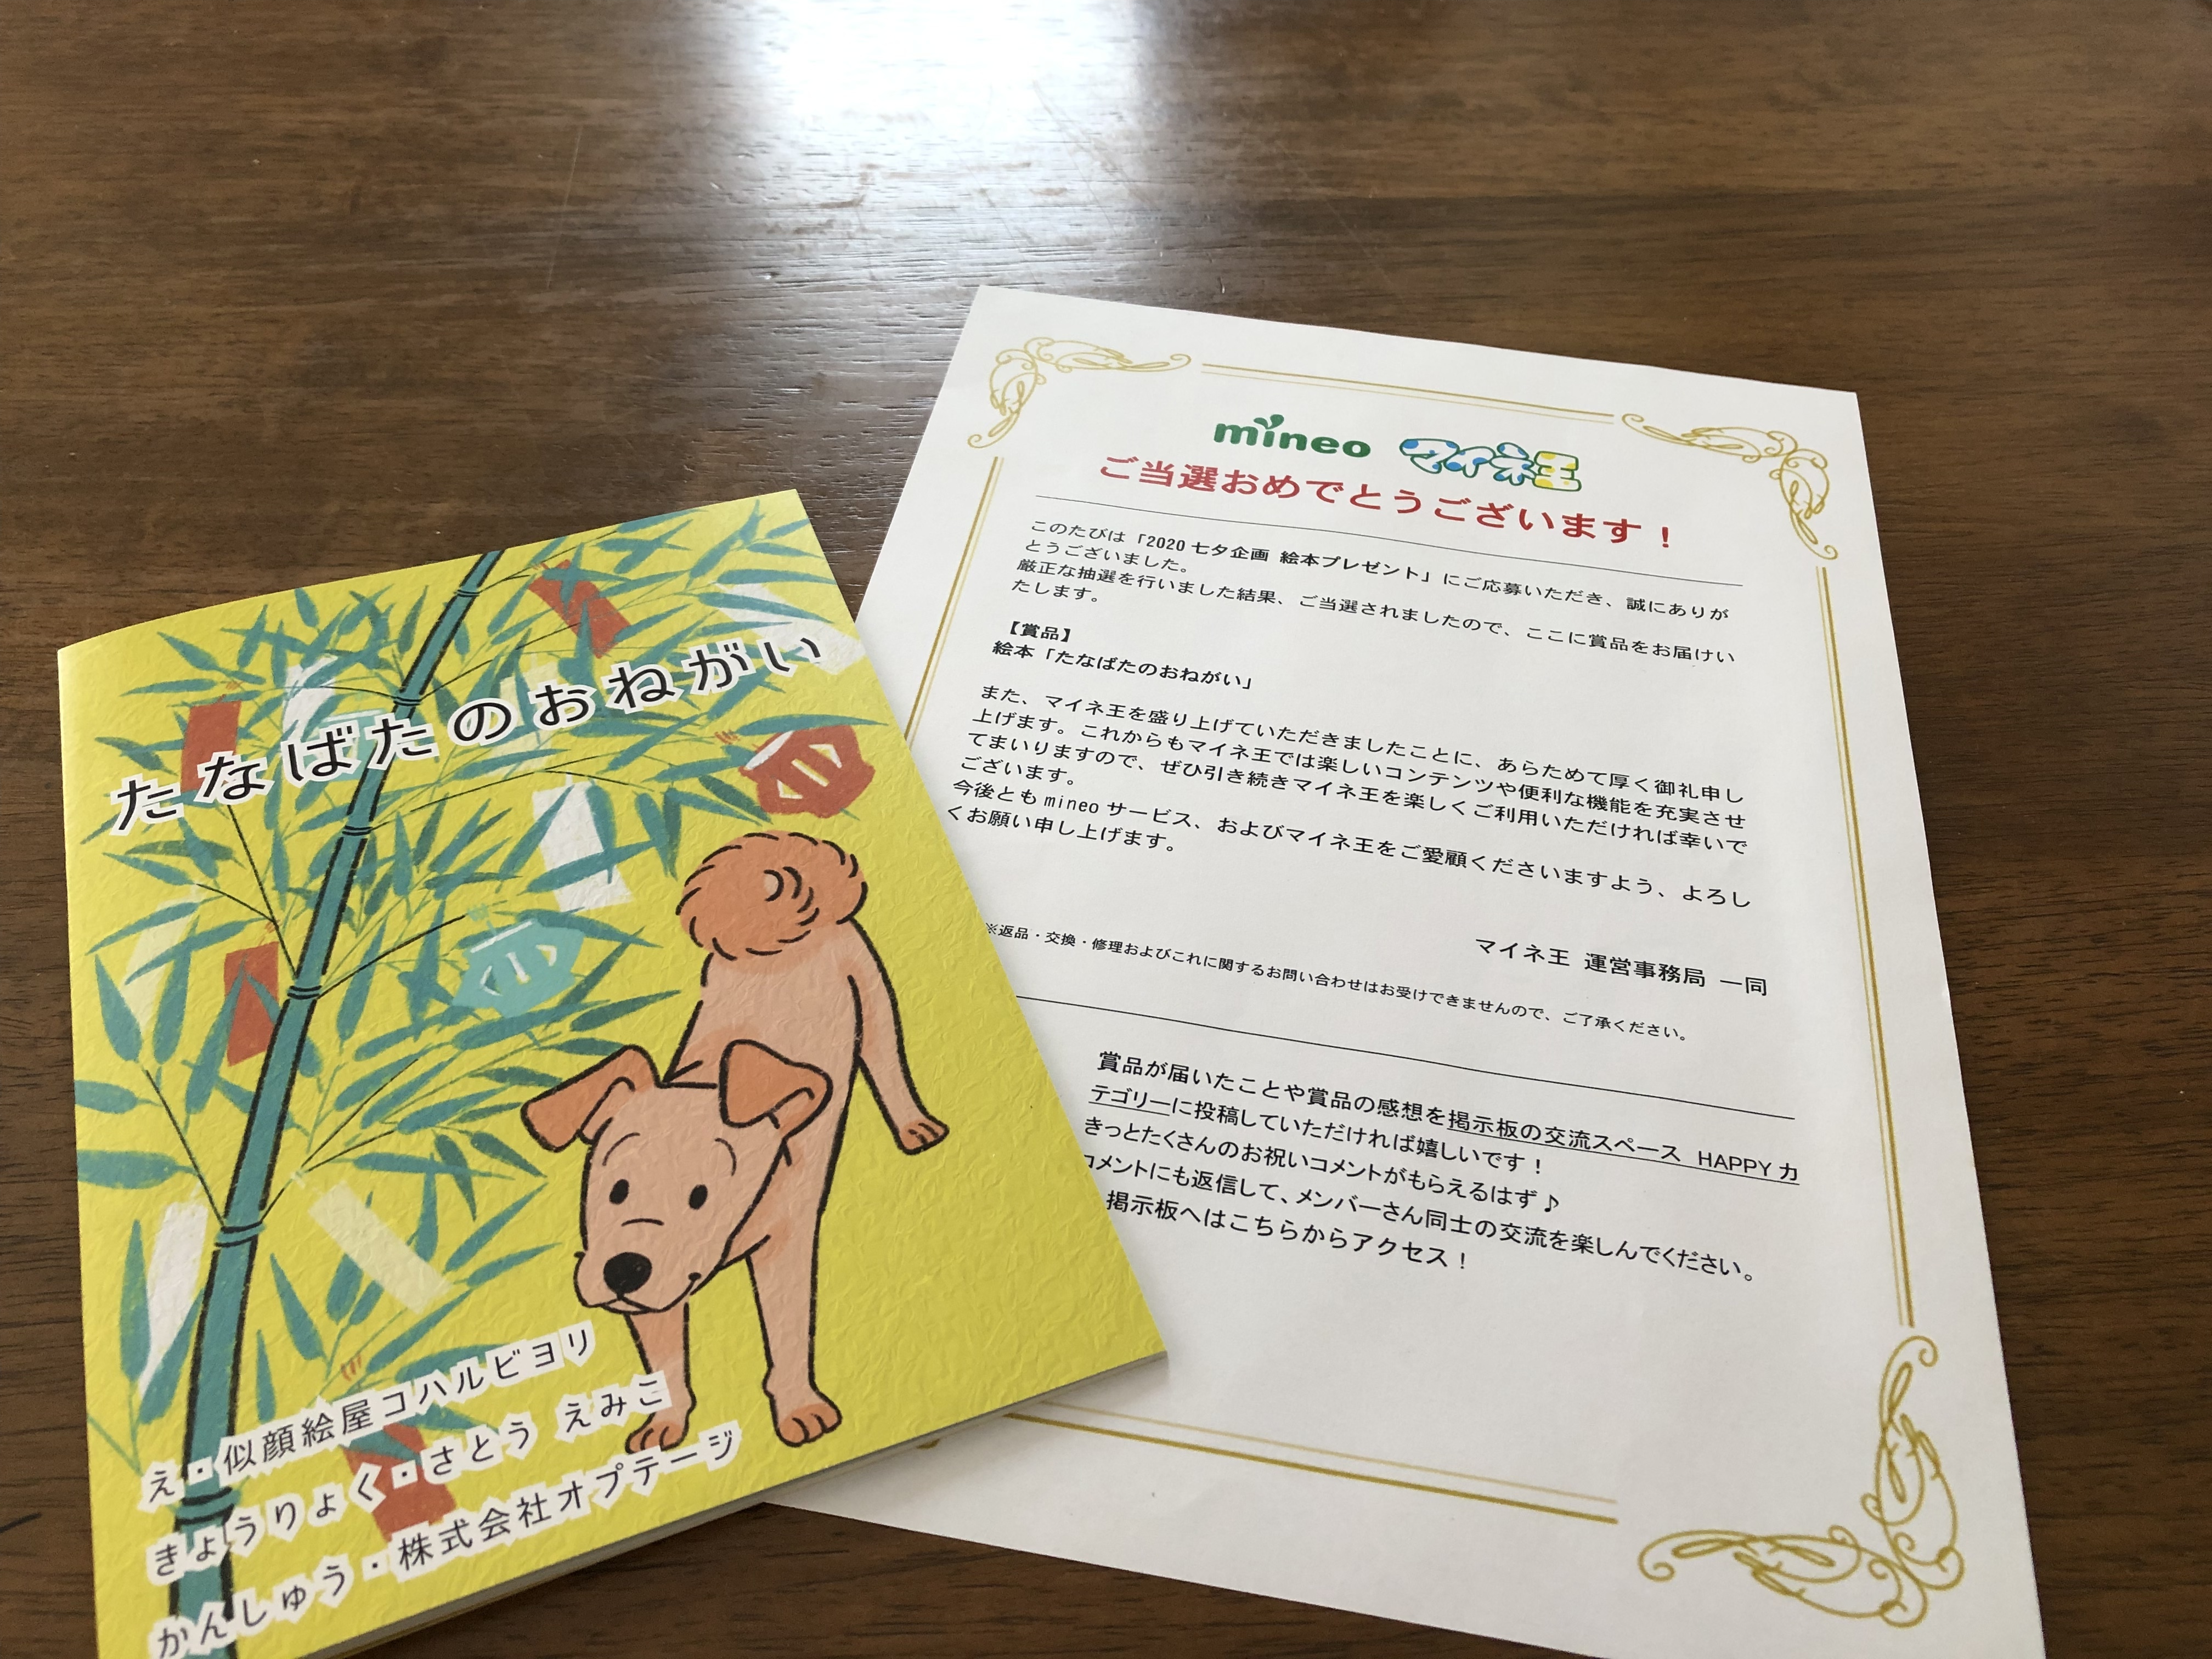 たなばたのおねがい
え・似顔絵屋コハルビヨリ
きょうりょく・さとう えみこ
かんしゅう・株式会社オプテージ
mineo マイネ王
ご当選おめでとうございます！
このたびは「2020 七夕企画 絵本プレゼント」にご応募いただき、誠にありが
とうございました。
厳正な抽選を行いました結果、ご当選されましたので、ここに賞品をお届けい
たします。
【賞品】
絵本「たなばたのおねがい」
また、マイネ王を盛り上げていただきましたことに、あらためて厚く御礼申し
上げます。これからもマイネ王では楽しいコンテンツや便利な機能を充実させ
てまいりますので、ぜひ引き続きマイネ王を楽しくご利用いただければ幸いで
ございます。
今後とも mineo サービス、およびマイネ王をご愛顧くださいますよう、よろし
くお願い申し上げます。
マイネ王 運営事務局 一同
※返品・交換・修理およびこれに関するお問い合わせはお受けできませんので、ご了承ください。
賞品が届いたことや賞品の感想を掲示板の交流スペース HAPPY カ
テゴリーに投稿していただければ嬉しいです！
きっとたくさんのお祝いコメントがもらえるはず♪
コメントにも返信して、メンバーさん同士の交流を楽しんでください。
掲示板へはこちらからアクセス！